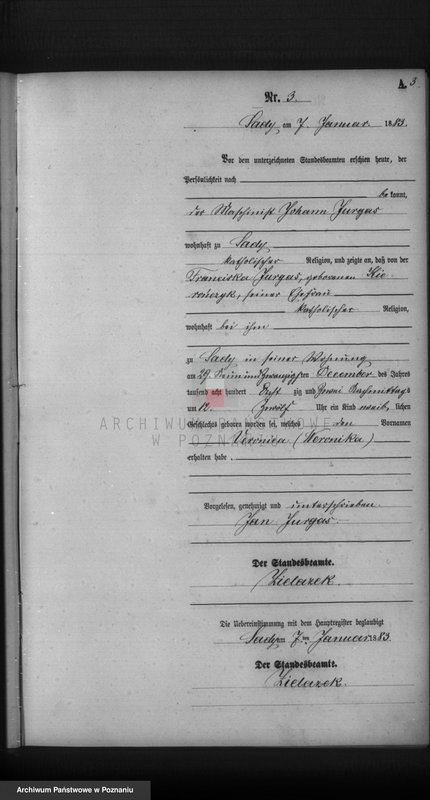 A. 3
Nr. 3.
Sady am 7. Januar 1883.
Vor dem unterzeichneten Standesbeamten erschien heute, der
Persönlichkeit nach
bekannt,
der Maschinist Johann Jurgas
wohnhaft zu Sady
katholischer Religion, und zeigte an, daß von der
Franciska Jurgas, geborenen
seiner Ehefrau
katholischer Religion,
wohnhaft bei ihm
zu Sady in seiner Wohnung
am 29. Neun und Zwanzigsten December des Jahres
tausend acht hundert zig und Zwei Nachmittags
um 12. Zwölf Uhr ein Kind weiblichen
Geschlechts geboren worden sei, welches den Vornamen
Veronica (Weronika)
erhalten habe.
ARCHIWUM PAŃSTWOWE
W POZNANIU
Vorgelesen, genehmigt und unterschrieben.
Jan Jurgas.
Der Standesbeamte.
Zielazek.
Die Uebereinstimmung mit dem Hauptregister beglaubigt
Sady am 7. ten Januar 1883.
Der Standesbeamte.
Zielazek.
Archiwum Państwowe w Poznaniu